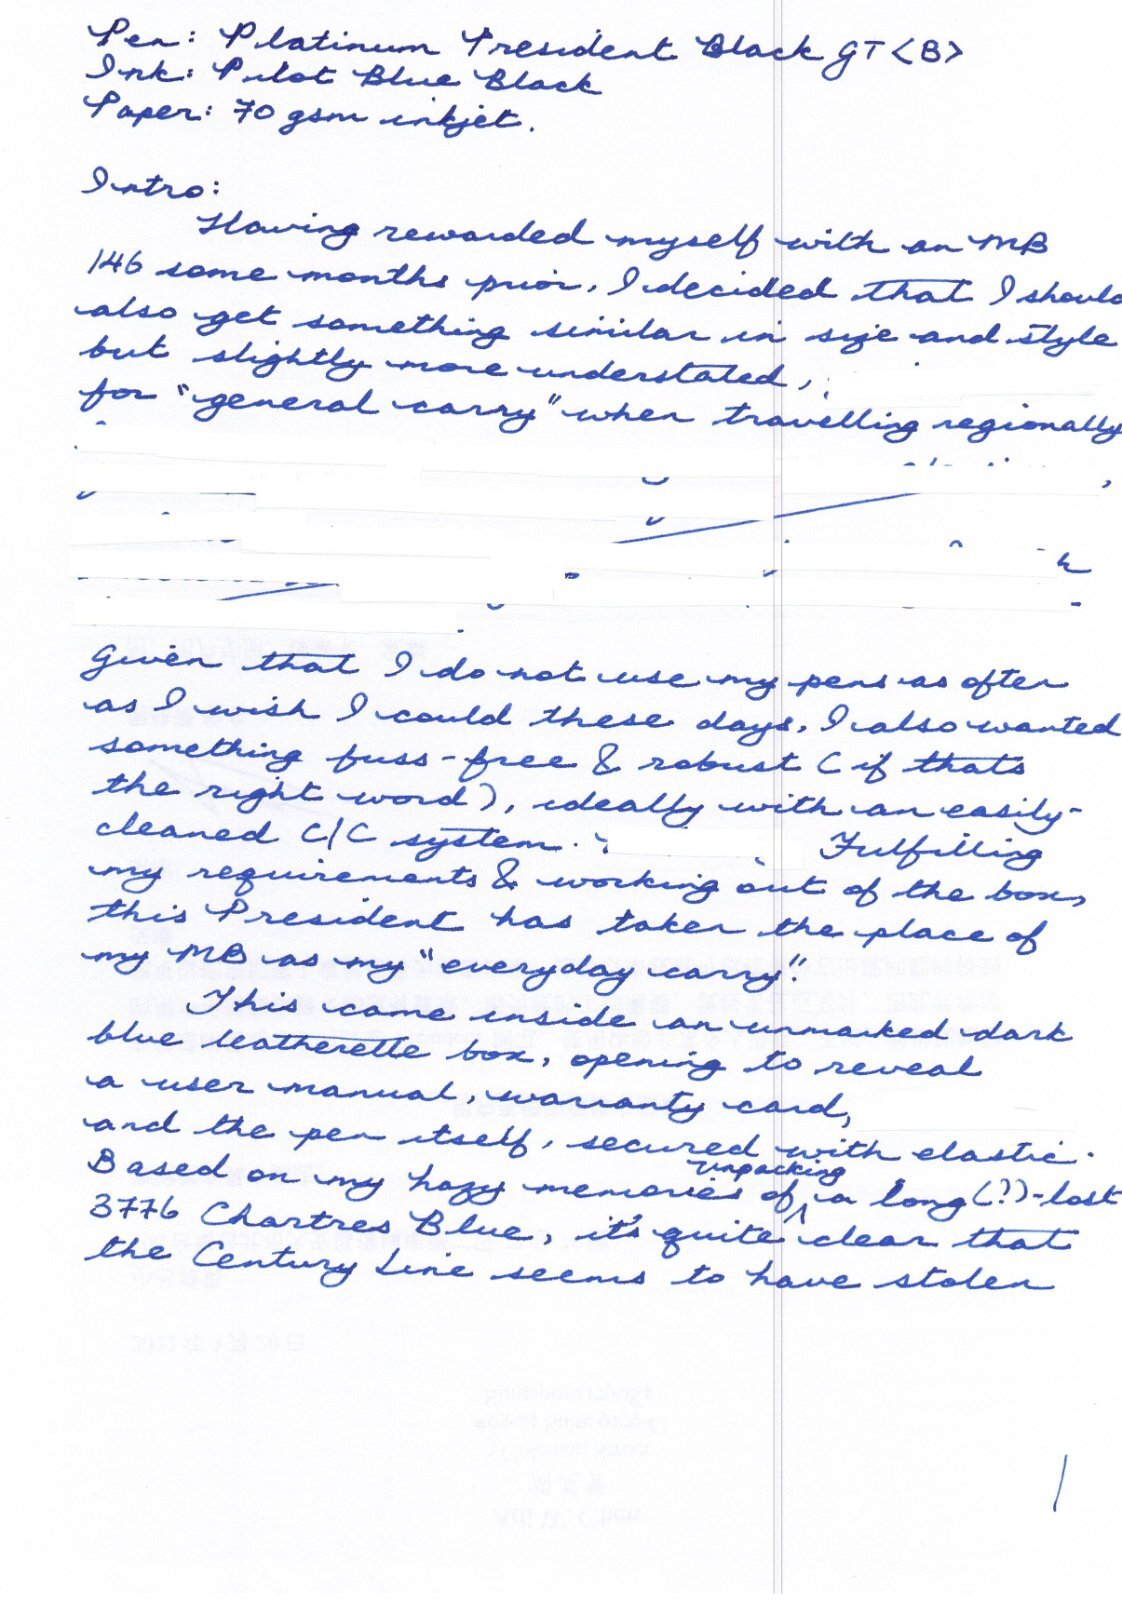 Pen: Platinum President Black GT <B>
Ink: Pilot Blue Black
Paper: 70 gsm inkjet.
Intro:
Having rewarded myself with an MB
146 some months prior, I decided that I should
also get something similar in size and style
but slightly more understated,
for "general carry" when travelling regionally
Given that I do not use my pens as often
as I wish I could these days, I also wanted
something fuss-free & robust (if thats
the right word), ideally with an easily-
cleaned C/C system. Fulfilling
my requirements & working out of the box,
this President has taken the place of
my MB as my "everyday carry".
This came inside an unmarked dark
blue leatherette box, opening to reveal
a user manual, warranty card,
and the pen itself, secured with elastic.
Based on my hazy memories of unpacking a long(?)-lost
3776 Chartres Blue, it's quite clear that
the Century Line seems to have stolen
1